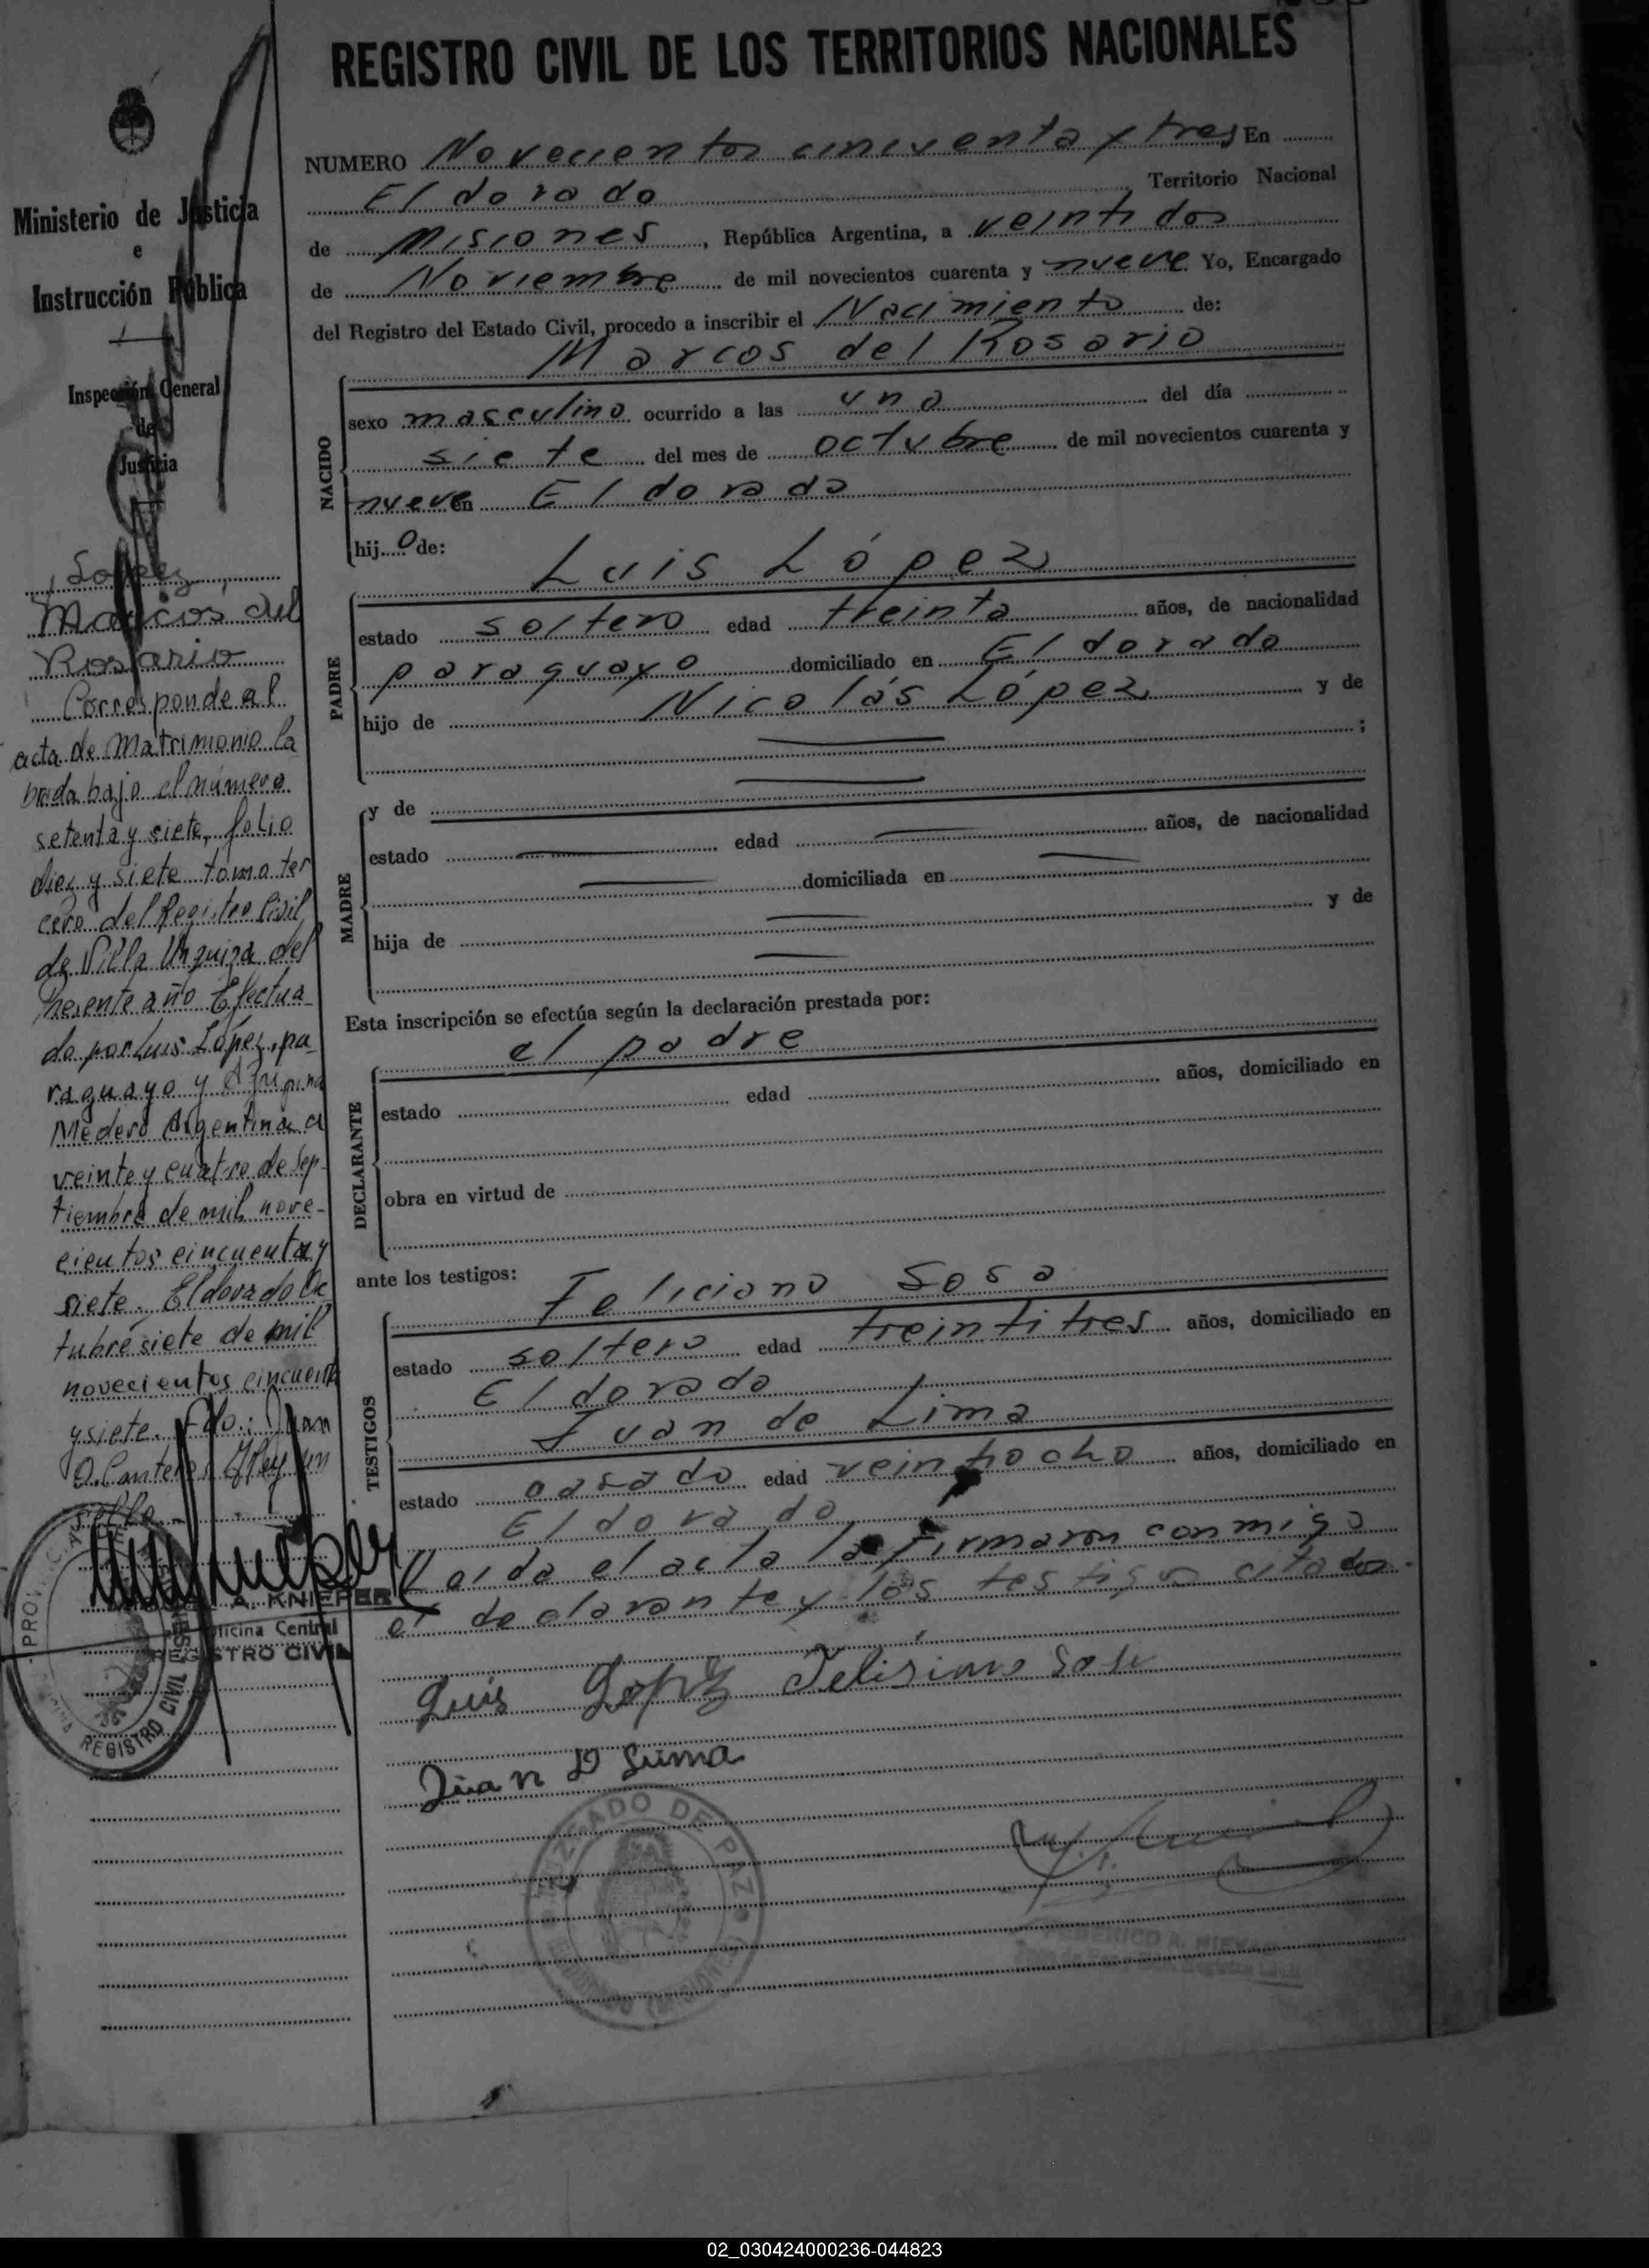 REGISTRO CIVIL DE LOS TERRITORIOS NACIONALES
NUMERO Novecientos cincuenta y tres En
Eldorado Territorio Nacional
de Misiones, República Argentina, a veintidos
de Noviembre de mil novecientos cuarenta y nueve Yo, Encargado
del Registro del Estado Civil, procedo a inscribir el Nacimiento de:
Marcos del Rosario
NACIDO
sexo masculino ocurrido a las una del día
siete del mes de octubre de mil novecientos cuarenta y
nueve en Eldorado
hij o de:
Luis López
PADRE
estado soltero edad treinta años, de nacionalidad
paraguayo domiciliado en Eldorado
hijo de Nicolás López y de
;
MADRE
y de
estado edad años, de nacionalidad
domiciliada en
hija de y de
Esta inscripción se efectúa según la declaración prestada por:
el padre
DECLARANTE
estado edad años, domiciliado en
obra en virtud de
ante los testigos:
Feliciano Sosa
TESTIGOS
estado soltero edad treintitres años, domiciliado en
Eldorado
Juan de Lima
estado casado edad veintiocho años, domiciliado en
Eldorado
Leída el acta la firmaron conmigo
el declarante y los testigos citados.
Luis Lopez Felisiano Sosa
Juan D Lima
JUZGADO DE PAZ
Ministerio de Justicia
e
Instrucción Pública
Inspección General
de
Justicia
Lopez,
Marcos del
Rosario
Corresponde al
acta de Matrimonio la
brada bajo el número
setenta y siete, folio
diez y siete tomo ter
cero del Registro Civil
de Villa Urquiza del
presente año Efectua
do por Luis López, pa
raguayo y
Medero Argentina a
veinte y cuatro de Sep
tiembre de mil nove-
cientos cincuenta y
siete. Eldorado Oc
tubre siete de mil
novecientos cincuenta
y siete. Fdo.: Juan
O. Cantero Hay un
sello.
A. KNIEPER
Oficina Central
REGISTRO CIVIL
REGISTRO CIVIL
02_030424000236-044823